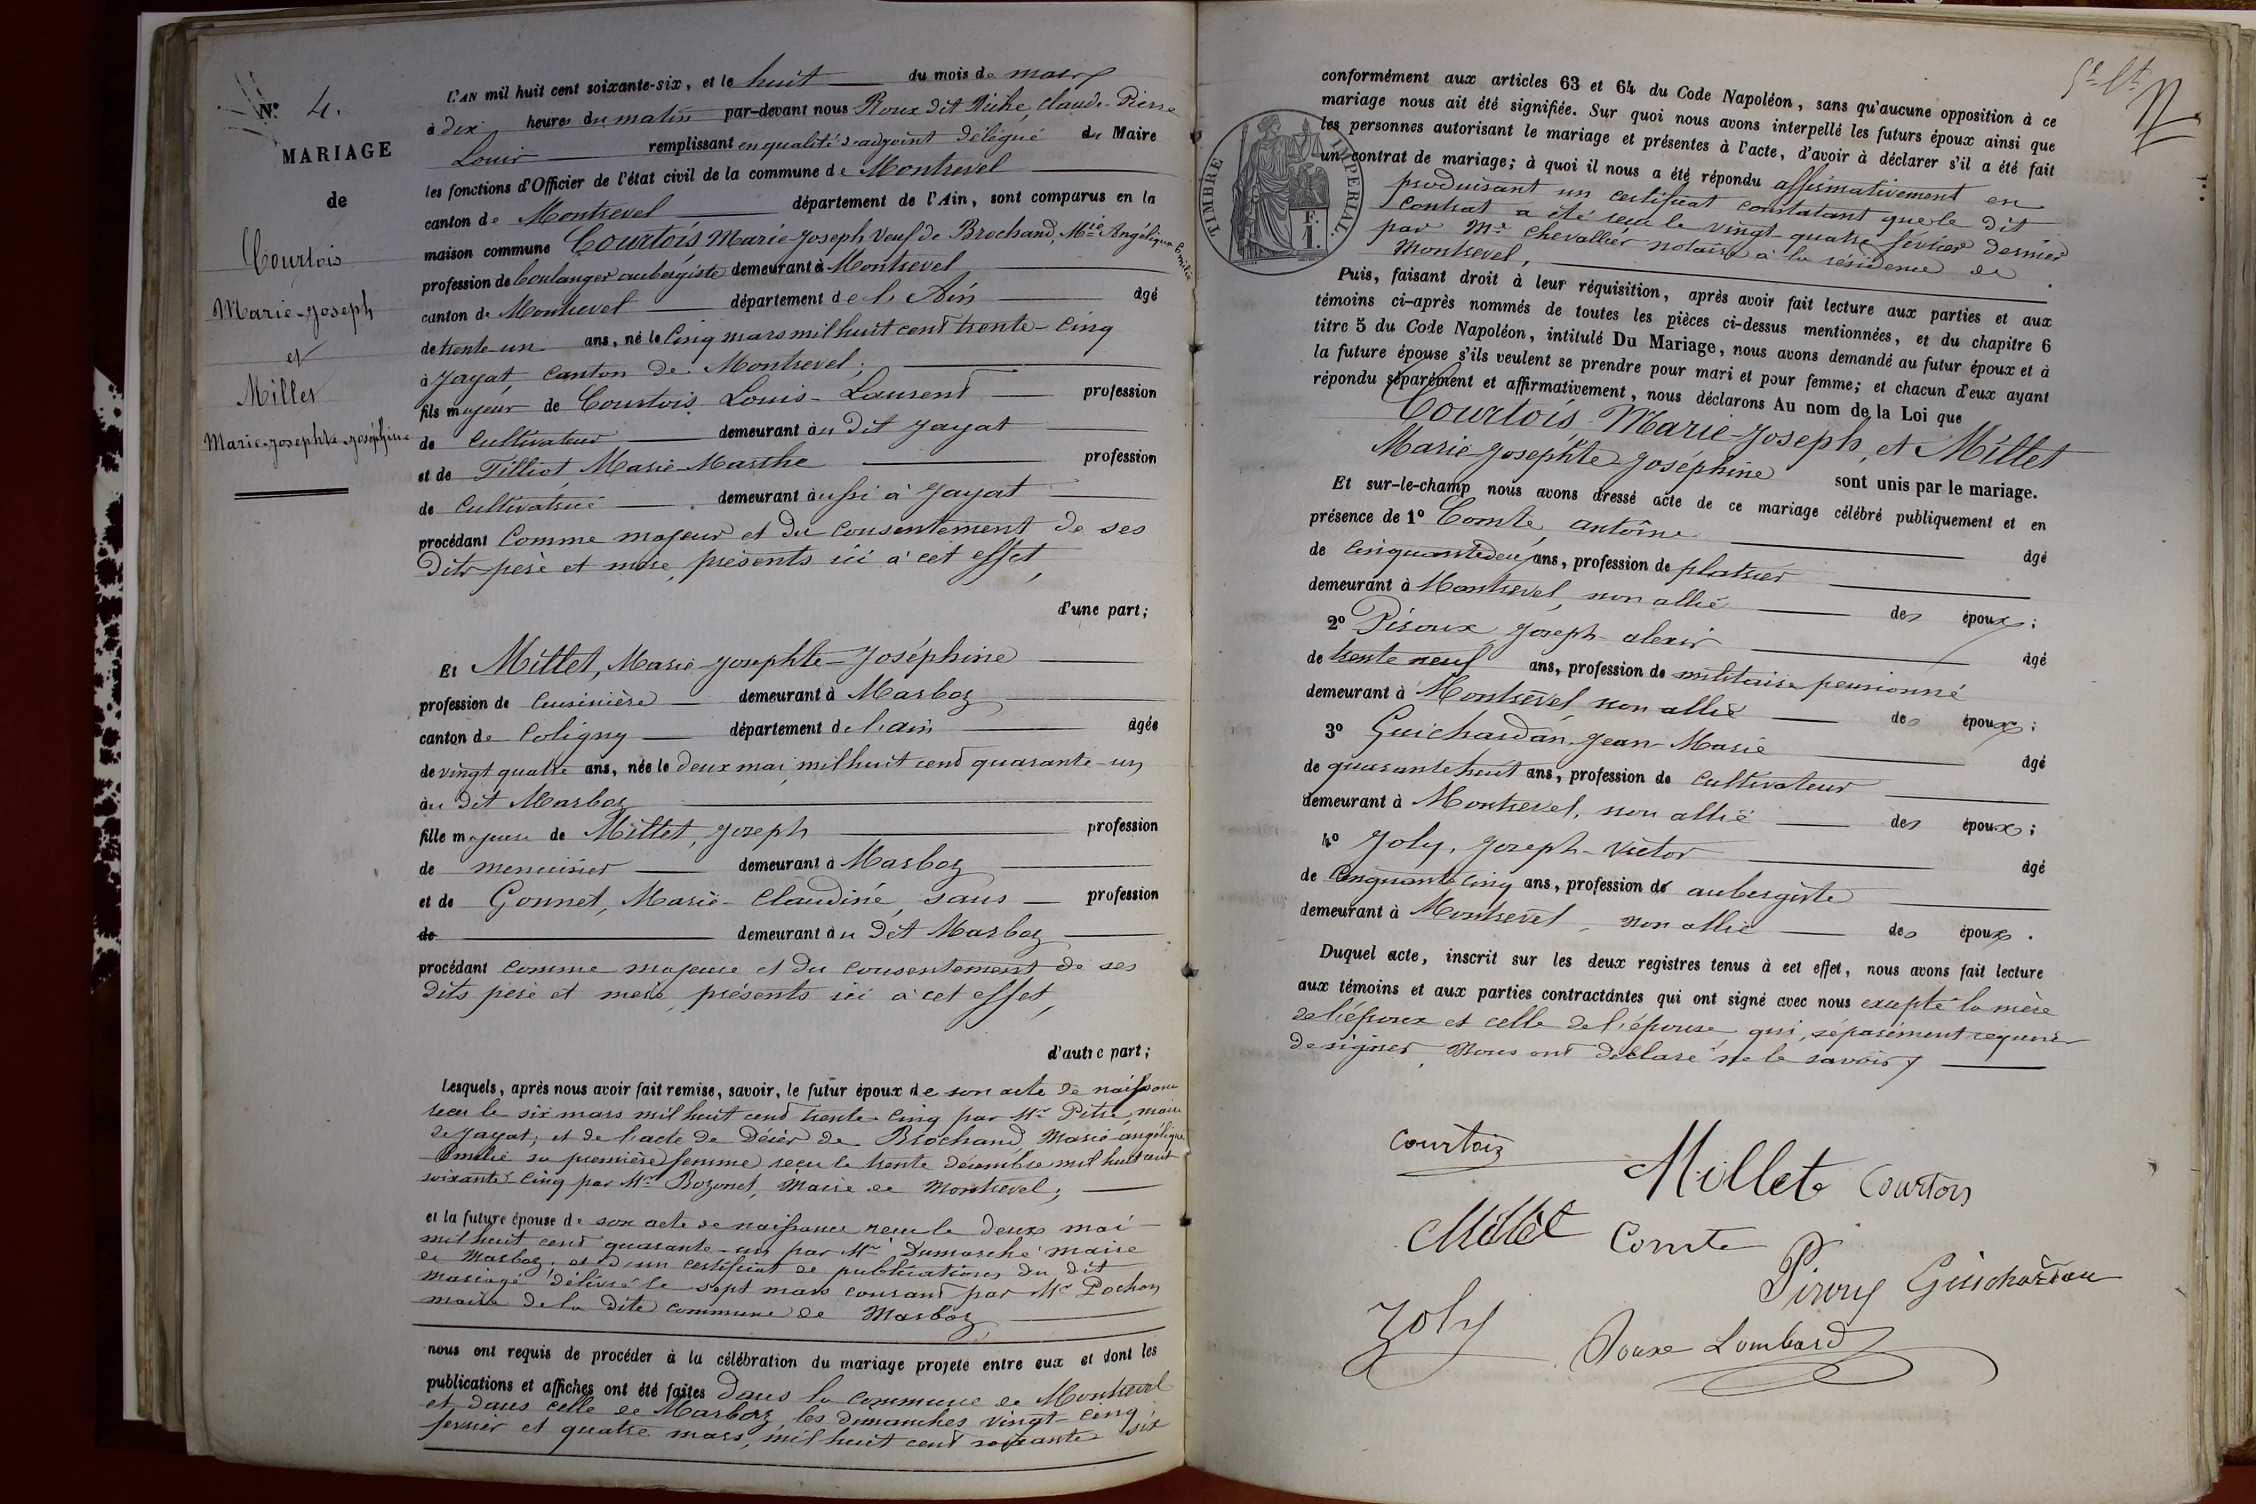 N° 4.
MARIAGE
de
Courtois
Marie-Joseph
et
Millet
Marie-Josephte-Joséphine
L'AN mil huit cent soixante-six, et le huit du mois de mars
à dix heures du matin par-devant nous Roux dit Riche, Claude-Pierre
Louis remplissant en qualité d'adjoint délégué du Maire
les fonctions d'Officier de l'état civil de la commune de Montrevel
canton de Montrevel département de l'Ain, sont comparus en la
maison commune Courtois Marie-Joseph Veuf de Brochand, Mie Angélique Emilie
profession de boulanger aubergiste demeurant à Montrevel
canton de Montrevel département de l'Ain âgé
de trente-un ans, né le cinq mars mil huit cent trente-cinq
à Jayat, canton de Montrevel,
fils majeur de Courtois Louis-Laurent profession
de cultivateur demeurant au dit Jayat
et de Tilliot Marie-Marthe profession
de cultivatrice demeurant aussi à Jayat
procédant comme majeur et du consentement de ses
dits père et mère, présents ici à cet effet,
d'une part;
Et Millet, Marie-Josephte-Joséphine
profession de cuisinière demeurant à Marboz
canton de Coligny département de l'ain âgée
de vingt quatre ans, née le deux mai mil huit cent quarante-un
au dit Marboz
fille majeure de Millet, Joseph profession
de menuisier demeurant à Marboz
et de Gonnet, Marie-Claudine, sans profession
de demeurant au dit Marboz
procédant comme majeure et du consentement de ses
dits père et mère, présents ici à cet effet,
d'autre part;
Lesquels, après nous avoir fait remise, savoir, le futur époux de son acte de naissance
reçu le six mars mil huit cent trente-cinq par Mr Pitre, maire
de Jayat, et de l'acte de décès de Brochand Marie-angélique
Emilie sa première femme, reçu le trente décembre mil huit cent
soixante-cinq par Mr Bozonet, Maire de Montrevel;
et la future épouse de son acte de naissance reçu le deux mai
mil huit cent quarante-un par Mr Dumarché maire
de Marboz, et d'un certificat de publications du dit
mariage délivré le sept mars courant par Mr Pochon
maire de la dite commune de Marboz,
nous ont requis de procéder à la célébration du mariage projeté entre eux et dont les
publications et affiches ont été faites dans la commune de Montrevel
et dans celle de Marboz, les dimanches vingt-cinq
février et quatre mars, mil huit cent soixante-six
conformément aux articles 63 et 64 du Code Napoléon, sans qu'aucune opposition à ce
mariage nous ait été signifiée. Sur quoi nous avons interpellé les futurs époux ainsi que
les personnes autorisant le mariage et présentes à l'acte, d'avoir à déclarer s'il a été fait
un contrat de mariage; à quoi il nous a été répondu affirmativement en
produisant un certificat constatant que le dit
contrat a été reçu le vingt-quatre février dernier
par Me Chevallier notaire à la résidence de
Montrevel,
TIMBRE IMPERIAL
F.
1.
Puis, faisant droit à leur réquisition, après avoir fait lecture aux parties et aux
témoins ci-après nommés de toutes les pièces ci-dessus mentionnées, et du chapitre 6
titre 5 du Code Napoléon, intitulé Du Mariage, nous avons demandé au futur époux et à
la future épouse s'ils veulent se prendre pour mari et pour femme; et chacun d'eux ayant
répondu séparément et affirmativement, nous déclarons Au nom de la Loi que
Courtois Marie-Joseph, et Millet
Marie-Josephte-Joséphine sont unis par le mariage.
Et sur-le-champ nous avons dressé acte de ce mariage célébré publiquement et en
présence de 1° Comte, antoine âgé
de cinquante deux ans, profession de platrier
demeurant à Montrevel, non allié des époux;
2° Piroux Joseph-alexis âgé
de trente neuf ans, profession de militaire pensionné
demeurant à Montrevel, non allié des époux;
3° Guichardan, Jean-Marie âgé
de quarante huit ans, profession de cultivateur
demeurant à Montrevel, non allié des époux;
4° Joly, Joseph-Victor âgé
de cinquante cinq ans, profession de aubergiste
demeurant à Montrevel, non allié des époux.
Duquel acte, inscrit sur les deux registres tenus à cet effet, nous avons fait lecture
aux témoins et aux parties contractantes qui ont signé avec nous excepté la mère
de l'époux et celle de l'épouse, qui, séparément requises
de signer, nous ont déclaré ne le savoir
courtois
Millet Courtois
Millet Comte
Piroux Guichardan
Joly
Roux Lombard